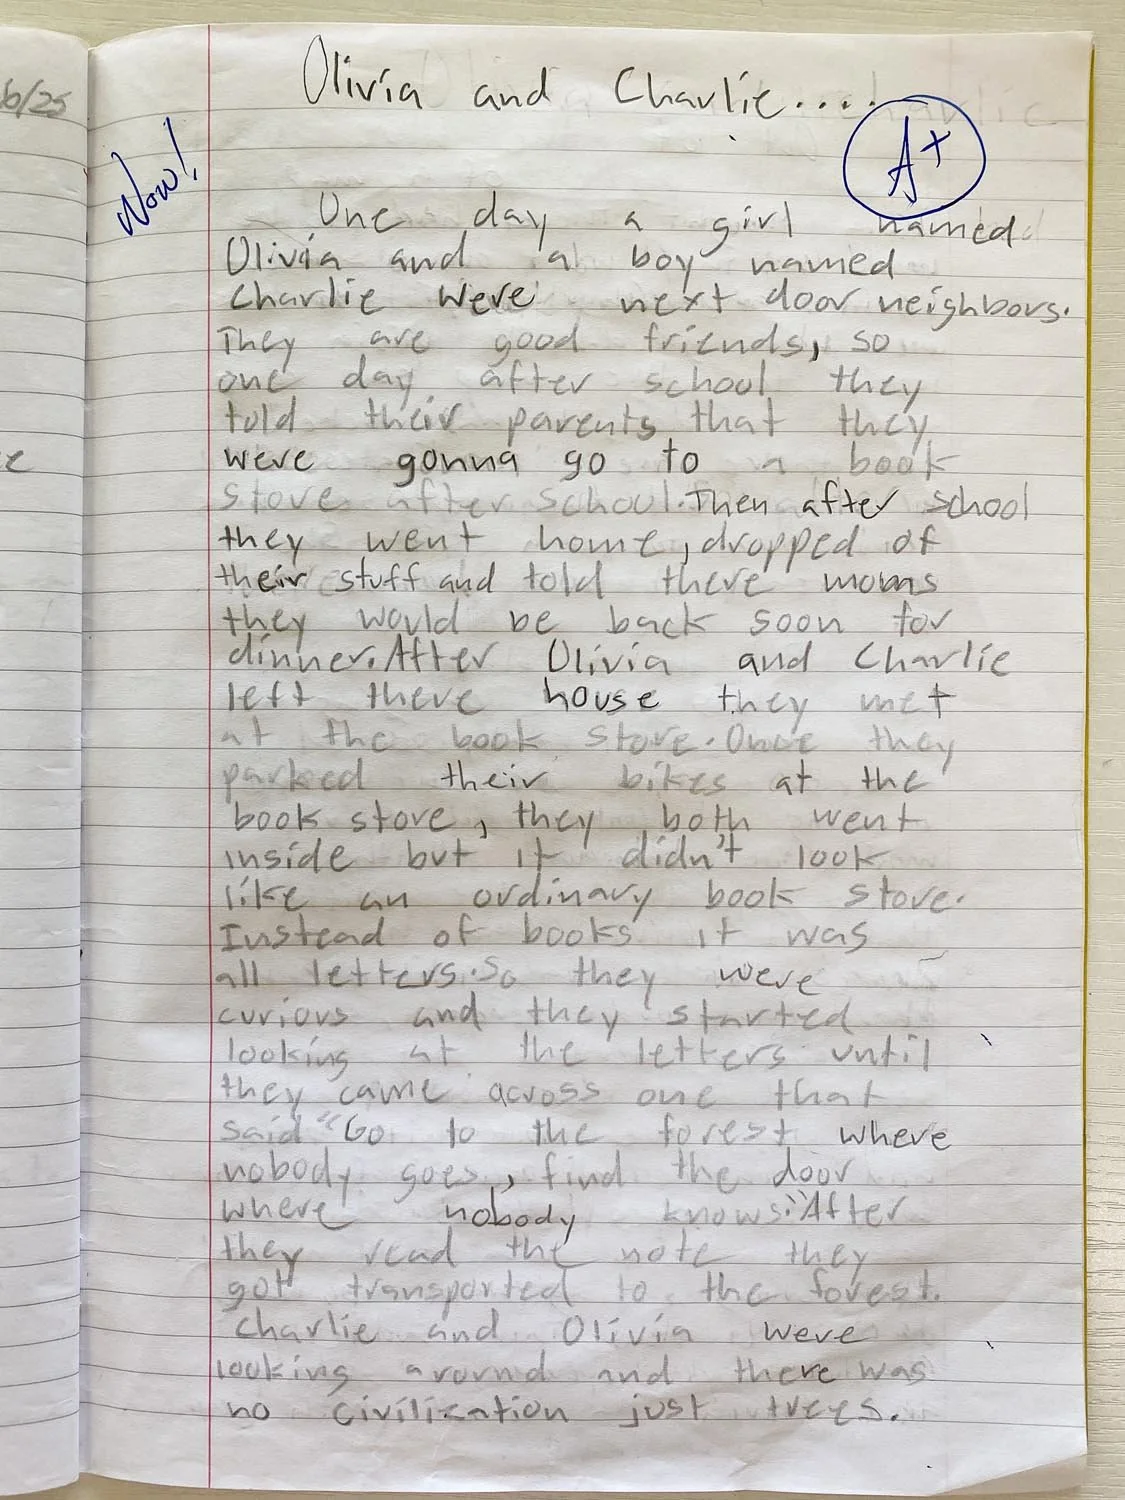 6/25
Olivia and Charlie....
A+
Wow!
One day a girl named
Olivia and a boy named
Charlie were next door neighbors.
They are good friends, so
one day after school they
told their parents that they
were gonna go to a book
store after school. Then after school
they went home, dropped of
their stuff and told there moms
they would be back soon for
dinner. After Olivia and Charlie
left there house they met
at the book store. Once they
parked their bikes at the
book store, they both went
inside but it didn't look
like an ordinary book store.
Instead of books it was
all letters. So they were
curious and they started
looking at the letters until
they came across one that
said "Go to the forest where
nobody goes, find the door
where nobody knows." After
they read the note they
got transported to the forest.
Charlie and Olivia were
looking around and there was
no civilization just trees.